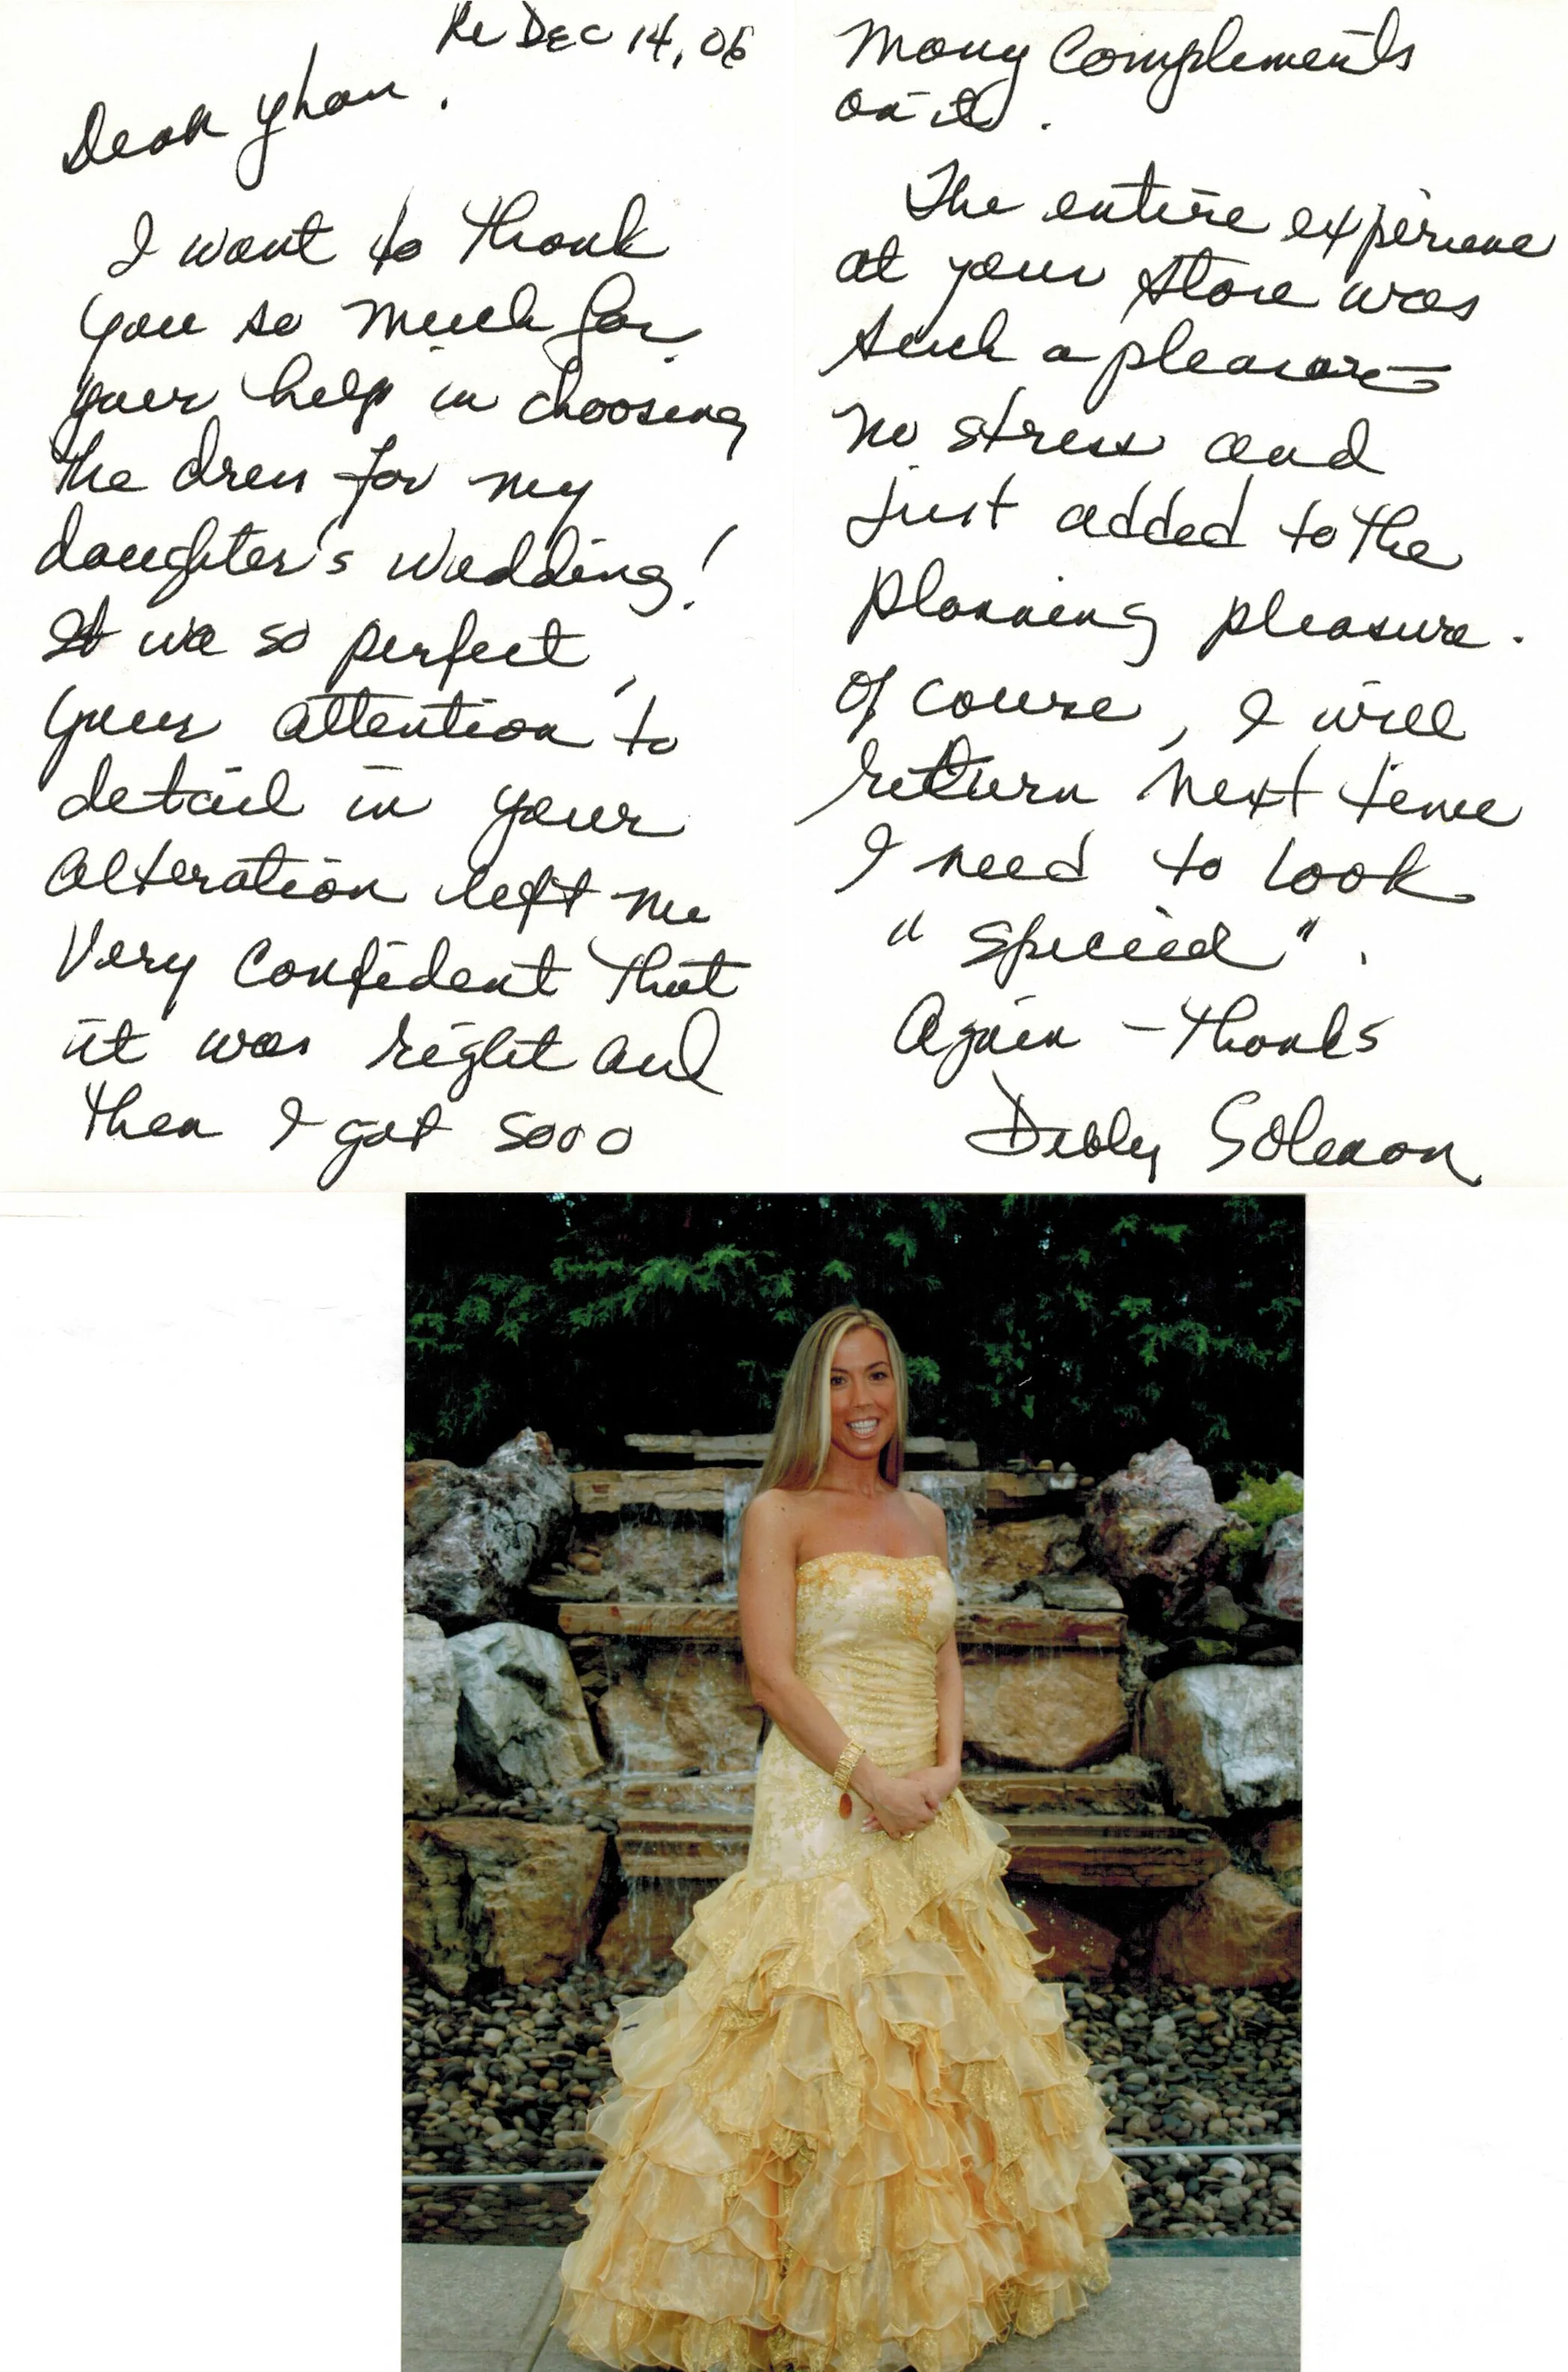 Re Dec 14, 06
Dear
I want to thank
you so much for
your help in choosing
the dress for my
daughter's wedding!
It wa so perfect,
your attention to
detail in your
alteration left me
very confident that
it was right and
then I got sooo
many complements
on it.
The entire experience
at your store was
such a pleasure
no stress and
just added to the
planning pleasure.
Of course, I will
return next time
I need to look
"special".
Again - thanks